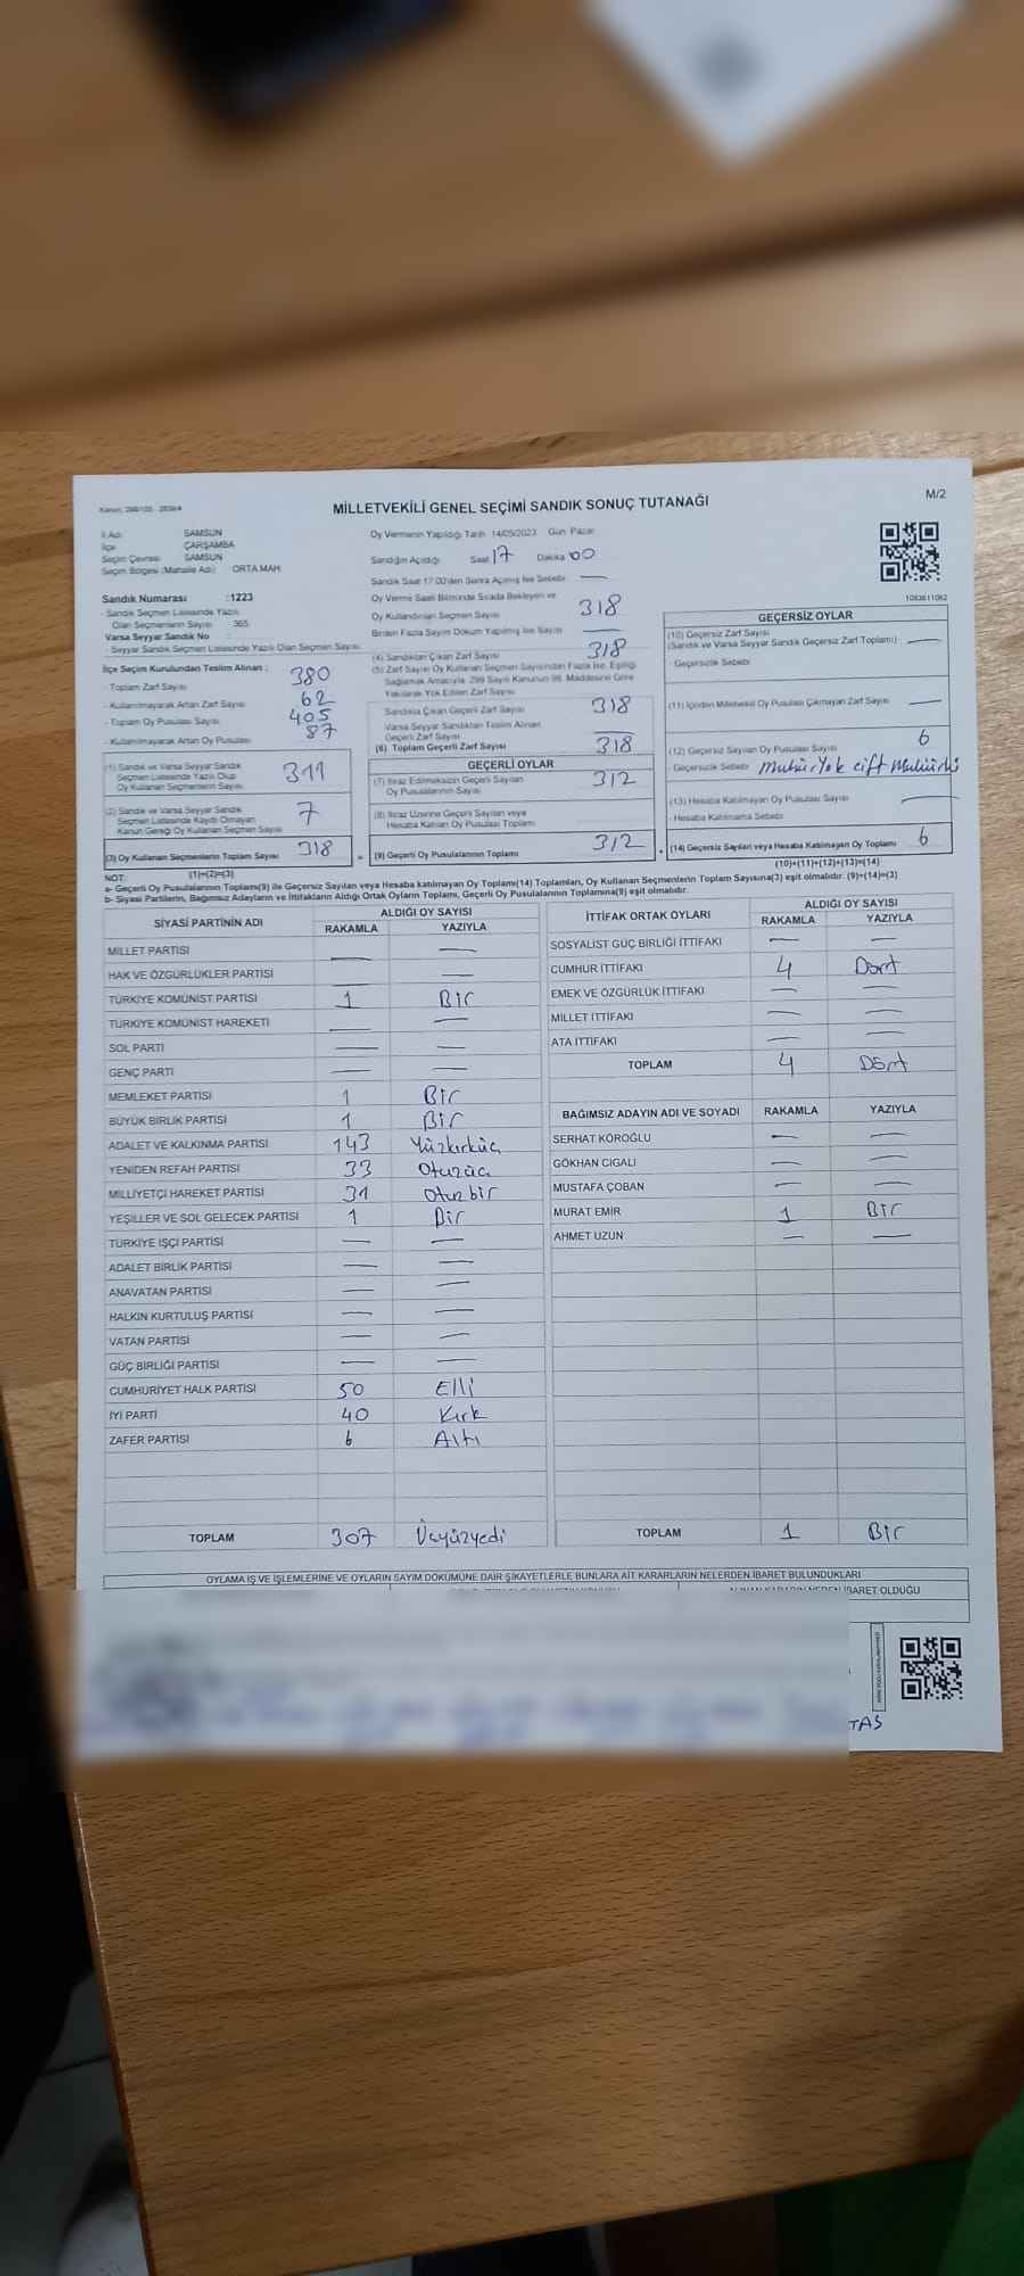 MİLLETVEKİLİ GENEL SEÇİMİ SANDIK SONUÇ TUTANAĞI
M/2
İl Adı SAMSUN
İlçe ÇARŞAMBA
Seçim Çevresi SAMSUN
Seçim Bölgesi (Mahalle Adı) ORTA MAH.
Oy Vermenin Yapıldığı Tarih 14/05/2023 Gün Pazar
Sandığın Açıldığı Saat 17 Dakika 00
Sandık Saat 17.00'den Sonra Açılmış İse Sebebi —
Sandık Numarası :1223
- Sandık Seçmen Listesinde Yazılı
Olan Seçmenlerin Sayısı 365
Varsa Seyyar Sandık No
- Seyyar Sandık Seçmen Listesinde Yazılı Olan Seçmen Sayısı
İlçe Seçim Kurulundan Teslim Alınan :
- Toplam Zarf Sayısı 380
- Kullanılmayarak Artan Zarf Sayısı 62
- Toplam Oy Pusulası Sayısı 405
- Kullanılmayarak Artan Oy Pusulası 87
(1) Sandık ve Varsa Seyyar Sandık
Seçmen Listesinde Yazılı Olup
Oy Kullanan Seçmenlerin Sayısı 311
(2) Sandık ve Varsa Seyyar Sandık
Seçmen Listesinde Kaydı Olmayan
Kanun Gereği Oy Kullanan Seçmen Sayısı 7
(3) Oy Kullanan Seçmenlerin Toplam Sayısı 318
(1)+(2)=(3)
Oy Verme Saati Bitiminde Sırada Bekleyen ve
Oy Kullandırılan Seçmen Sayısı 318
Birden Fazla Sayım Döküm Yapılmış İse Sayısı —
(4) Sandıktan Çıkan Zarf Sayısı 318
(5) Zarf Sayısı Oy Kullanan Seçmen Sayısından Fazla İse, Eşitliği
Sağlamak Amacıyla 298 Sayılı Kanunun 98. Maddesine Göre
Yakılarak Yok Edilen Zarf Sayısı
Sandıkta Çıkan Geçerli Zarf Sayısı 318
Varsa Seyyar Sandıktan Teslim Alınan
Geçerli Zarf Sayısı —
(6) Toplam Geçerli Zarf Sayısı 318
GEÇERLİ OYLAR
(7) İtiraz Edilmeksizin Geçerli Sayılan
Oy Pusulalarının Sayısı 312
(8) İtiraz Üzerine Geçerli Sayılan veya
Hesaba Katılan Oy Pusulası Toplamı
(9) Geçerli Oy Pusulalarının Toplamı 312
1083611082
GEÇERSİZ OYLAR
(10) Geçersiz Zarf Sayısı
(Sandık ve Varsa Seyyar Sandık Geçersiz Zarf Toplamı) —
Geçersizlik Sebebi
(11) İçinden Milletvekili Oy Pusulası Çıkmayan Zarf Sayısı —
(12) Geçersiz Sayılan Oy Pusulası Sayısı 6
- Geçersizlik Sebebi Mühür Yok çift Mühürlü
(13) Hesaba Katılmayan Oy Pusulası Sayısı —
- Hesaba Katılmama Sebebi
(14) Geçersiz Sayılan veya Hesaba Katılmayan Oy Toplamı 6
(10)+(11)+(12)+(13)=(14)
NOT:
a- Geçerli Oy Pusulalarının Toplamı(9) ile Geçersiz Sayılan veya Hesaba katılmayan Oy Toplamı(14) Toplamları, Oy Kullanan Seçmenlerin Toplam Sayısına(3) eşit olmalıdır. (9)+(14)=(3)
b- Siyasi Partilerin, Bağımsız Adayların ve İttifakların Aldığı Ortak Oyların Toplamı, Geçerli Oy Pusulalarının Toplamına(9) eşit olmalıdır.
SİYASİ PARTİNİN ADI ALDIĞI OY SAYISI
RAKAMLA YAZIYLA
MİLLET PARTİSİ — —
HAK VE ÖZGÜRLÜKLER PARTİSİ —
TÜRKİYE KOMÜNİST PARTİSİ 1 Bir
TÜRKİYE KOMÜNİST HAREKETİ — —
SOL PARTİ — —
GENÇ PARTİ — —
MEMLEKET PARTİSİ 1 Bir
BÜYÜK BİRLİK PARTİSİ 1 Bir
ADALET VE KALKINMA PARTİSİ 143 Yüzkırküç
YENİDEN REFAH PARTİSİ 33 Otuzüç
MİLLİYETÇİ HAREKET PARTİSİ 31 Otuzbir
YEŞİLLER VE SOL GELECEK PARTİSİ 1 Bir
TÜRKİYE İŞÇİ PARTİSİ — —
ADALET BİRLİK PARTİSİ — —
ANAVATAN PARTİSİ — —
HALKIN KURTULUŞ PARTİSİ — —
VATAN PARTİSİ — —
GÜÇ BİRLİĞİ PARTİSİ — —
CUMHURİYET HALK PARTİSİ 50 Elli
İYİ PARTİ 40 Kırk
ZAFER PARTİSİ 6 Altı
TOPLAM 307 Üçyüzyedi
İTTİFAK ORTAK OYLARI ALDIĞI OY SAYISI
RAKAMLA YAZIYLA
SOSYALİST GÜÇ BİRLİĞİ İTTİFAKI — —
CUMHUR İTTİFAKI 4 Dört
EMEK VE ÖZGÜRLÜK İTTİFAKI — —
MİLLET İTTİFAKI — —
ATA İTTİFAKI — —
TOPLAM 4 Dört
BAĞIMSIZ ADAYIN ADI VE SOYADI RAKAMLA YAZIYLA
SERHAT KÖROĞLU — —
GÖKHAN CIGALI — —
MUSTAFA ÇOBAN — —
MURAT EMİR 1 Bir
AHMET UZUN — —
TOPLAM 1 Bir
OYLAMA İŞ VE İŞLEMLERİNE VE OYLARIN SAYIM DÖKÜMÜNE DAİR ŞİKAYETLERLE BUNLARA AİT KARARLARIN NELERDEN İBARET BULUNDUKLARI
İBARET OLDUĞU
TAŞ